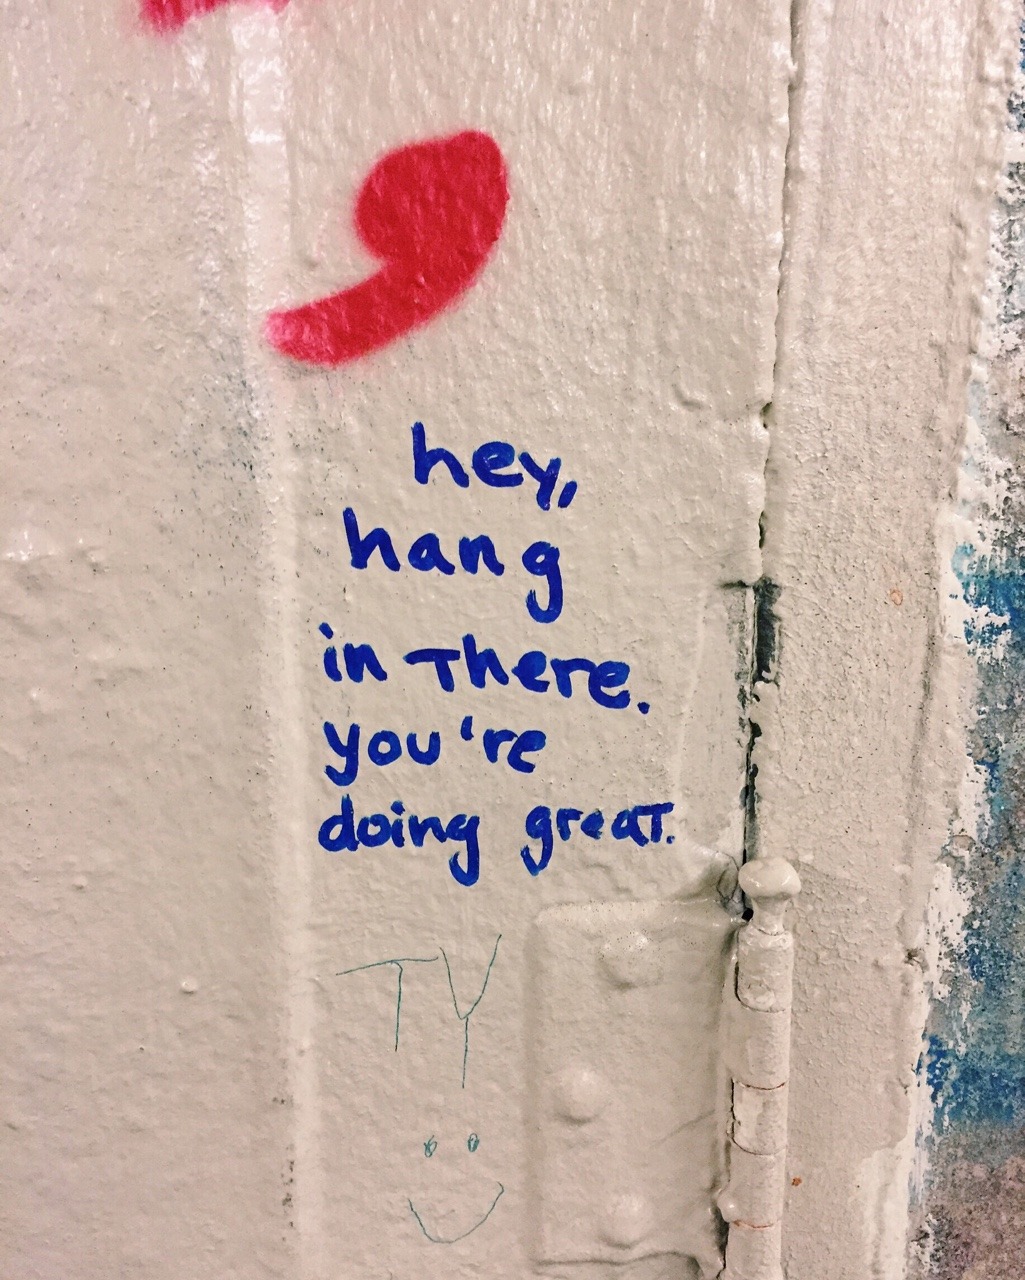 ,
hey,
hang
in There.
you're
doing greaT.
TY